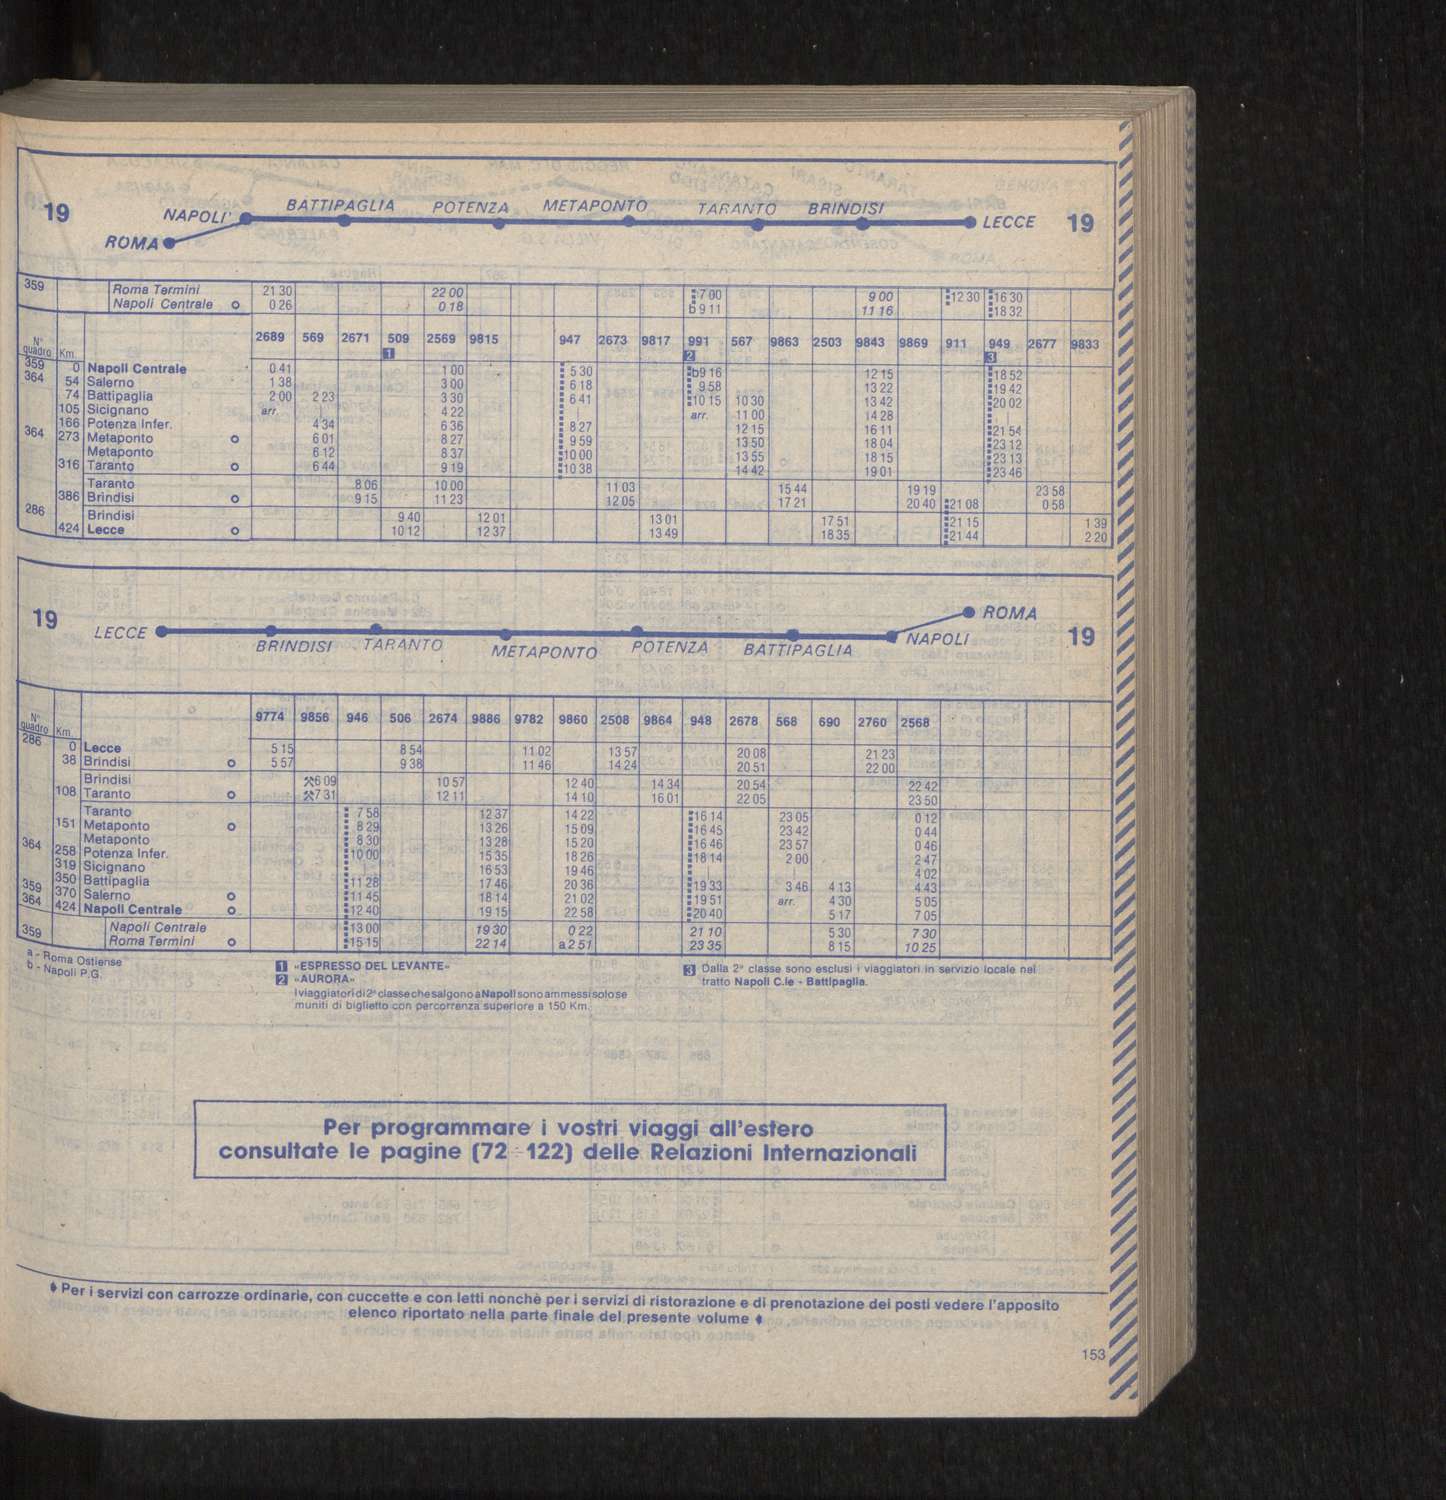 19 NAPOLI BATTIPAGLIA POTENZA METAPONTO TARANTO BRINDISI LECCE 19
ROMA
359 Roma Termini 21 30 22 00 7 00 9 00 12 30 16 30
Napoli Centrale o 0 26 0 18 b 9 11 11 16 18 32
N° quadro Km. 2689 569 2671 509 2569 9815 947 2673 9817 991 567 9863 2503 9843 9869 911 949 2677 9833
1 2 3
359 0 Napoli Centrale 0 41 1 00 5 30 b9 16 12 15 18 52
364 54 Salerno 1 38 3 00 6 18 9 58 13 22 19 42
74 Battipaglia 2 00 2 23 3 30 6 41 10 15 10 30 13 42 20 02
105 Sicignano arr. | 4 22 | arr. 11 00 14 28 |
166 Potenza Infer. 4 34 6 36 8 27 12 15 16 11 21 54
364 273 Metaponto o 6 01 8 27 9 59 13 50 18 04 23 12
Metaponto 6 12 8 37 10 00 13 55 18 15 23 13
316 Taranto o 6 44 9 19 10 38 14 42 19 01 23 46
Taranto 8 06 10 00 11 03 15 44 19 19 23 58
386 Brindisi o 9 15 11 23 12 05 17 21 20 40 21 08 0 58
286 Brindisi 9 40 12 01 13 01 17 51 21 15 1 39
424 Lecce o 10 12 12 37 13 49 18 35 21 44 2 20
19 LECCE BRINDISI TARANTO METAPONTO POTENZA BATTIPAGLIA NAPOLI ROMA 19
N° quadro Km. 9774 9856 946 506 2674 9886 9782 9860 2508 9864 948 2678 568 690 2760 2568
286 0 Lecce 5 15 8 54 11 02 13 57 20 08 21 23
38 Brindisi o 5 57 9 38 11 46 14 24 20 51 22 00
Brindisi ⚒6 09 10 57 12 40 14 34 20 54 22 42
108 Taranto o ⚒7 31 12 11 14 10 16 01 22 05 23 50
Taranto 7 58 12 37 14 22 16 14 23 05 0 12
151 Metaponto o 8 29 13 26 15 09 16 45 23 42 0 44
Metaponto 8 30 13 28 15 20 16 46 23 57 0 46
364 258 Potenza Infer. 10 00 15 35 18 26 18 14 2 00 2 47
319 Sicignano | 16 53 19 46 | | 4 02
350 Battipaglia 11 28 17 46 20 36 19 33 3 46 4 13 4 43
359 370 Salerno o 11 45 18 14 21 02 19 51 arr. 4 30 5 05
364 424 Napoli Centrale o 12 40 19 15 22 58 20 40 5 17 7 05
359 Napoli Centrale 13 00 19 30 0 22 21 10 5 30 7 30
Roma Termini o 15 15 22 14 a 2 51 23 35 8 15 10 25
a - Roma Ostiense
b - Napoli P.G.
1 «ESPRESSO DEL LEVANTE»
2 «AURORA»
I viaggiatori di 2ª classe che salgono a Napoli sono ammessi solo se
muniti di biglietto con percorrenza superiore a 150 Km.
3 Dalla 2ª classe sono esclusi i viaggiatori in servizio locale nel
tratto Napoli C.le - Battipaglia.
Per programmare i vostri viaggi all'estero
consultate le pagine (72÷122) delle Relazioni Internazionali
♦ Per i servizi con carrozze ordinarie, con cuccette e con letti nonchè per i servizi di ristorazione e di prenotazione dei posti vedere l'apposito
elenco riportato nella parte finale del presente volume ♦
153